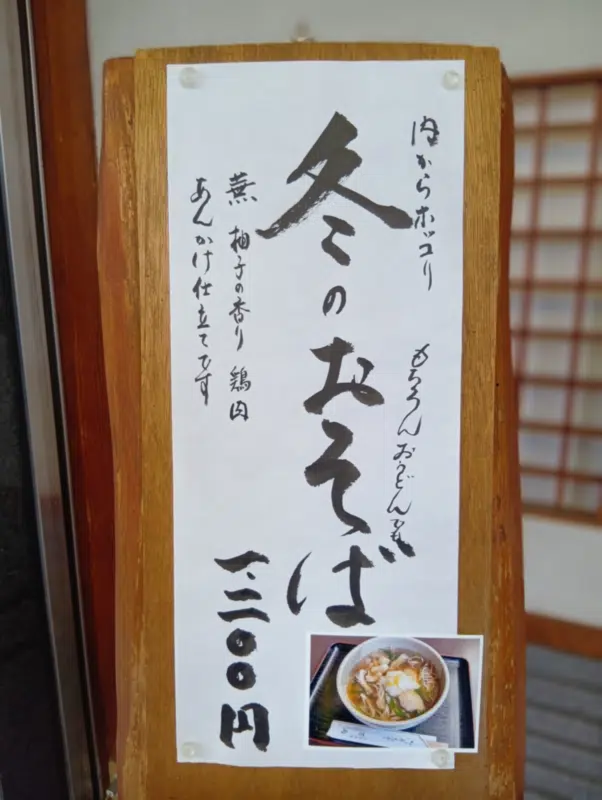 内からホッコリ
もちろんおうどんでも
冬のおそば
蕪 柚子の香り 鶏肉
あんかけ仕立てです
一、三〇〇円